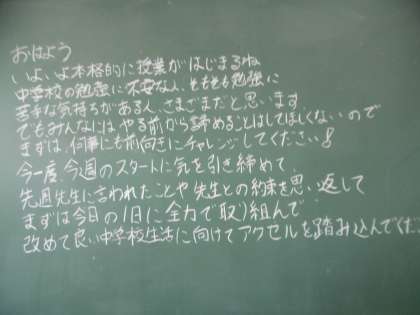 おはよう
いよいよ本格的に授業がはじまるね
中学校の勉強に不安な人、そもそも勉強に
苦手な気持ちがある人、さまざまだと思います
でもみんなには やる前から諦めることはしてほしくないので
まずは、何事にも前向きにチャレンジしてください!
今一度、今週のスタートに気を引き締めて、
先週先生に言われたことや先生との約束を思い返して
まずは今日の1日に全力で取り組んで
改めて良い中学校生活に向けてアクセルを踏み込んでくだ